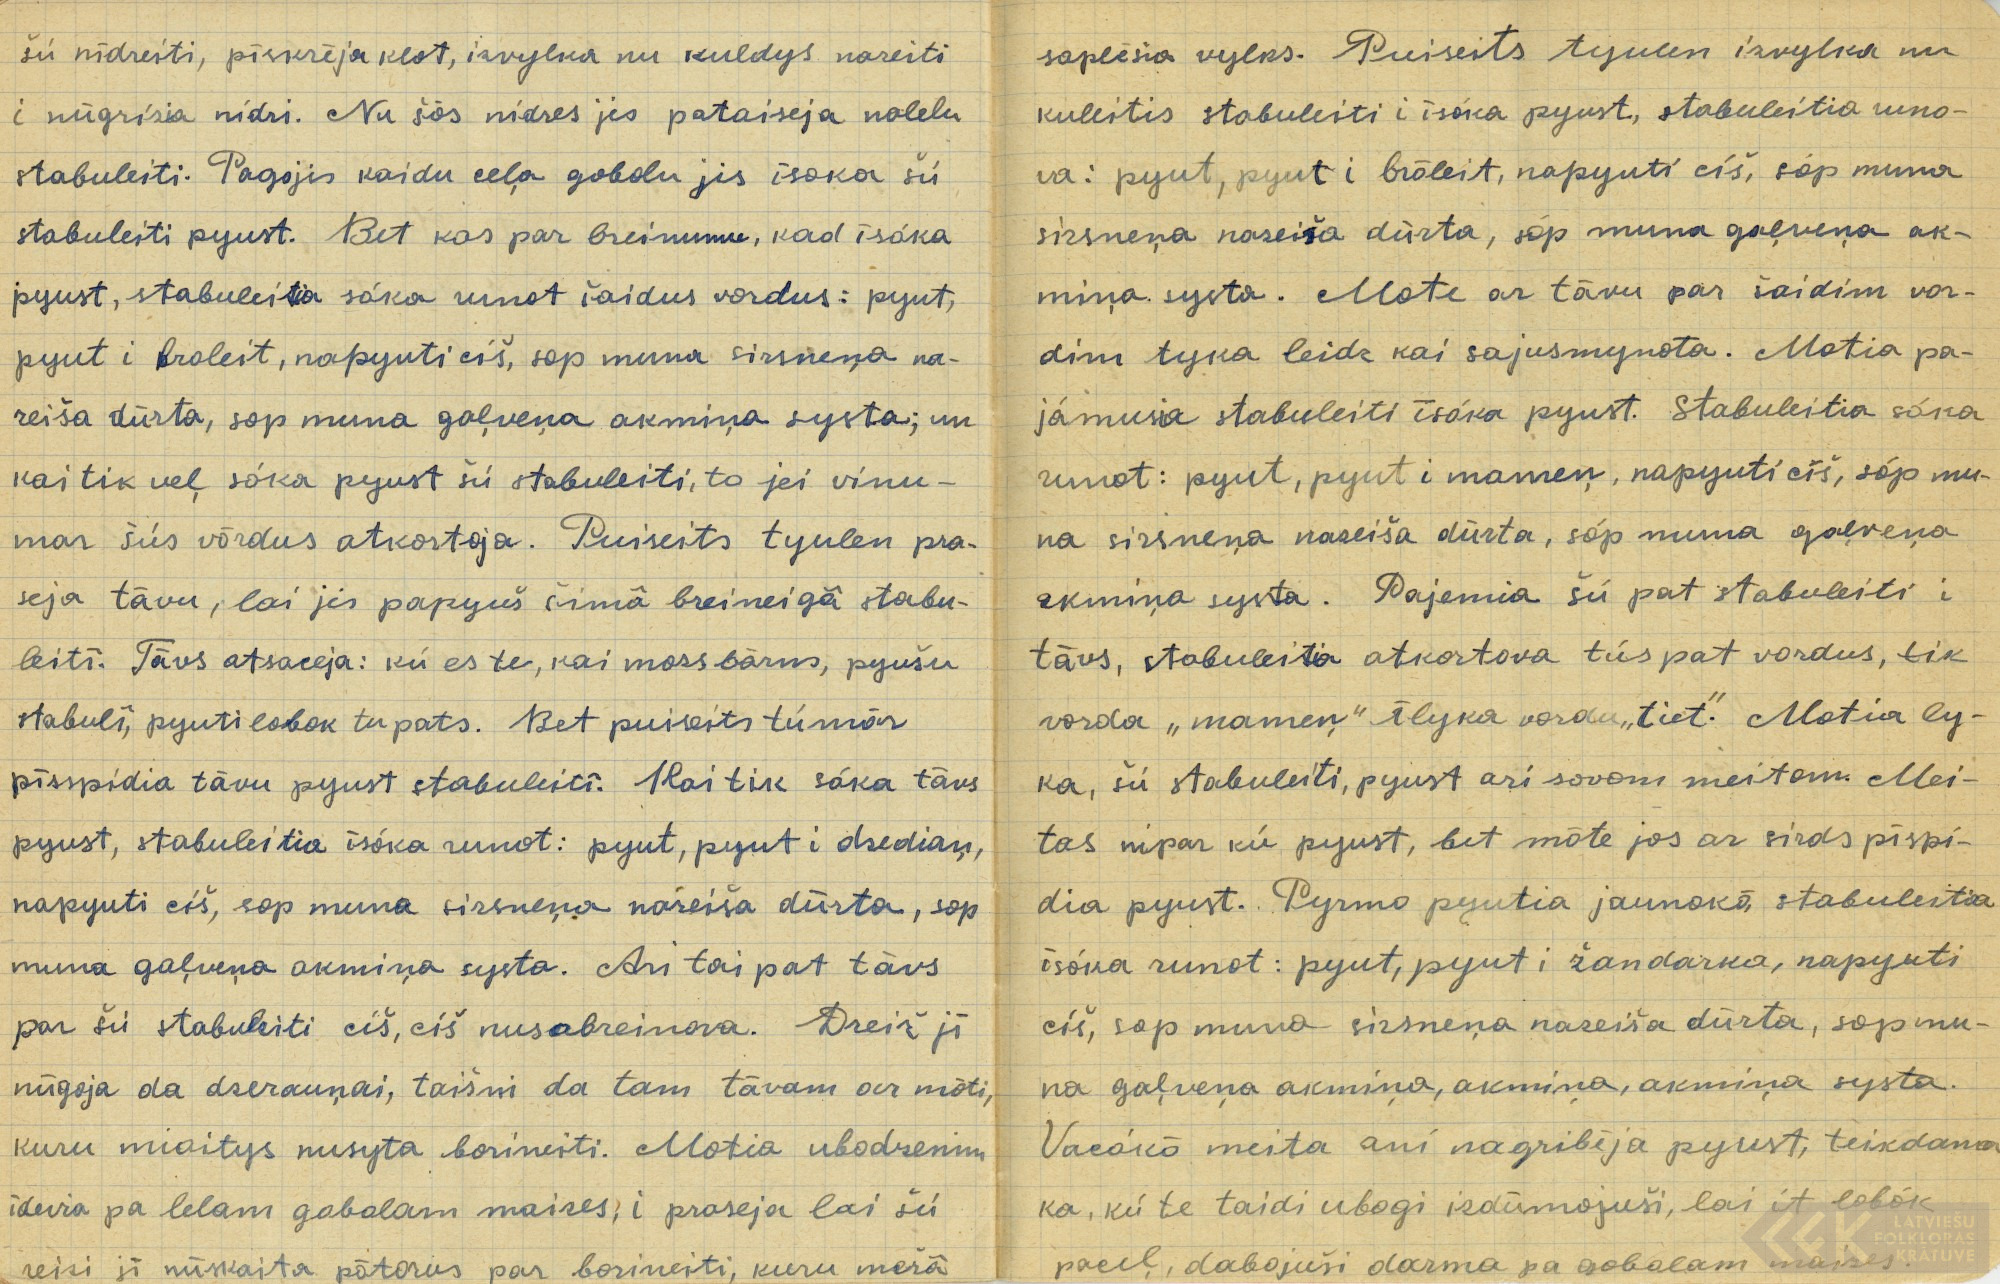 šú nīdreiti, pīskrēja klot, izvylka nu kuldys nazeiti
i nūgrīzia nídri. Nu šōs nídres jis pataiseja nalelu
stabuleiti. Pagojis kaidu ceļa gobolu jis īsoka šú
stabuleiti pyust. Bet kas par breinumu, kad īsóka
pyust, stabuleitia sóka runot šaidus vordus: pyut,
pyut i broleit, napyuti cíš, sop muna sirsneņa na-
zeiša dūrta, sop muna gaļveņa akmiņa systa; un
kai tik veļ sóka pyust šú stabuleiti, to jei vínu-
mar šús vōrdus atkortoja. Puiseits tyulen pra-
seja tāvu, lai jis papyuš šimā breineigā stabu-
leitī. Tāvs atsaceja: kú es te, kai mozs bārns, pyušu
stabulī, pyuti lobok tu pats. Bet puiseits túmār
pīsspídia tāvu pyust stabuleitī. Kai tik sóka tāvs
pyust, stabuleitia īsóka runot: pyut, pyut i dzediaņ,
napyuti cíš, sop muna sirsneņa nazeiša dūrta, sop
muna gaļveņa akmiņa systa. Ari tai pat tāvs
par šú stabuleiti cíš, cíš nusabreinova. Dreiž jī
nūgoja da dzerauņai, taišni da tam tāvam ar mōti,
kuru miaitys nusyta borineiti. Motia ubodzenim
īdevia pa lelam gobolam maizes, i praseja lai šú
reizi jī nūskaita pōtorus par borineiti, kuru mežā
saplēsia vylks. Puiseits tyulen izvylka nu
kuleitis stabuleiti i īsóka pyust, stabuleitia runo-
va: pyut, pyut i brōleit, napyuti cíš, sóp muna
sirsneņa nazeiša dūrta, sóp muna gaļveņa ak-
miņa systa. Mote ar tāvu par šaidim vor-
dim tyka leidz kai sajusmynota. Motia pa-
jámusia stabuleiti īsóka pyust. Stabuleitia sóka
runot: pyut, pyut i mameņ, napyuti cíš, sóp mu-
na sirsneņa nazeiša dūrta, sóp muna gaļveņa
akmiņa systa. Pajemia šú pat stabuleiti i
tāvs, stabuleitia atkortova túspat vordus, tik
vorda „mameņ" īlyka vordu „tiet". Motia ly-
ka, šú stabuleiti, pyust ari sovom meitom. Mei-
tas nipar kú pyust, bet mōte jos ar sirds pīspí-
dia pyust. Pyrmo pyutia jaunokō, stabuleitia
īsóka runot: pyut, pyut i žandarka, napyuti
cíš, sop muna sirsneņa nazeiša dūrta, sop mu-
na gaļveņa akmiņa, akmiņa, akmiņa systa.
Vacókō meita aní nagribēja pyust, teikdama
ka, kú te taidi ubogi izdūmojuši, lai it lobók
paceļ, dabojuši darma pa gobolam maizes.
LATVIEŠU
FOLKLORAS
KRĀTUVE